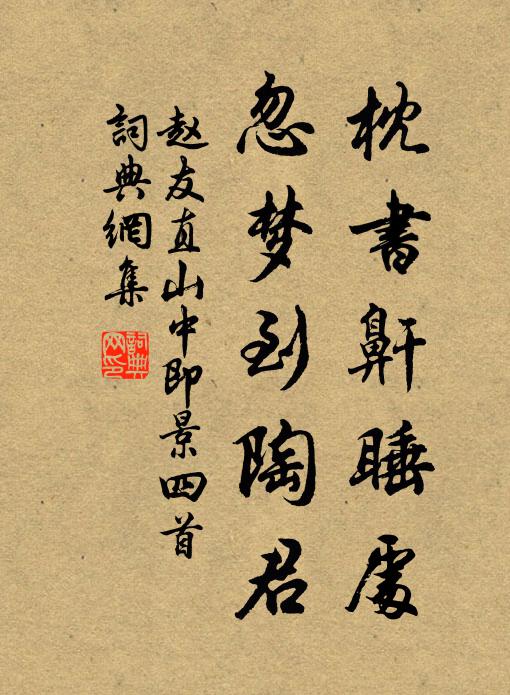 枕書鼾睡處
忽梦到陶君
赵友直山中即景四首
詞典網集
詞典網印